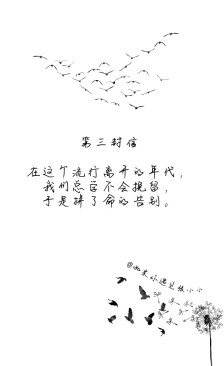 第三封信
在这个流行离开的年代，
我们总官不会挽留，
于是拼了命的告别。
@如果你遇见张小小